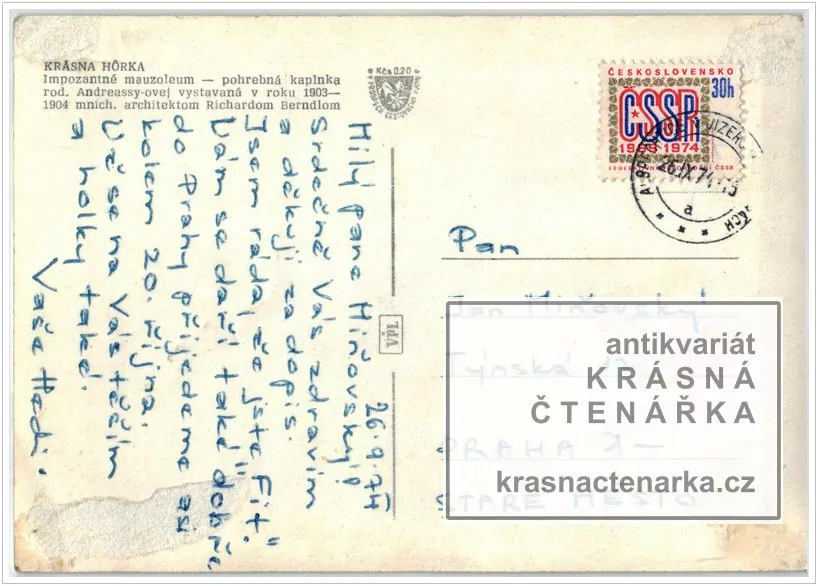 KRÁSNA HÔRKA
Impozantné mauzoleum — pohrebná kaplnka
rod. Andreassy-ovej vystavaná v roku 1903—
1904 mních. architektom Richardom Berndlom
Kčs 0,20
ČESKOSLOVENSKO
30h
ČSSR
1969 1974
26.9.74
Milý pane Miňovský!
Srdečně Vás zdravím
a děkuji za dopis.
Jsem ráda, že jste "Fit".
Nám se daří také dobře
do Prahy přijedeme asi
kolem 20. října.
Už se na Vás těším
a holky také.
Vaše Hedi.
VPL
Pan
Jan Miňovský
Týnská
PRAHA 1 —
STARÉ MĚSTO
antikvariát
KRÁSNÁ
ČTENÁŘKA
krasnactenarka.cz